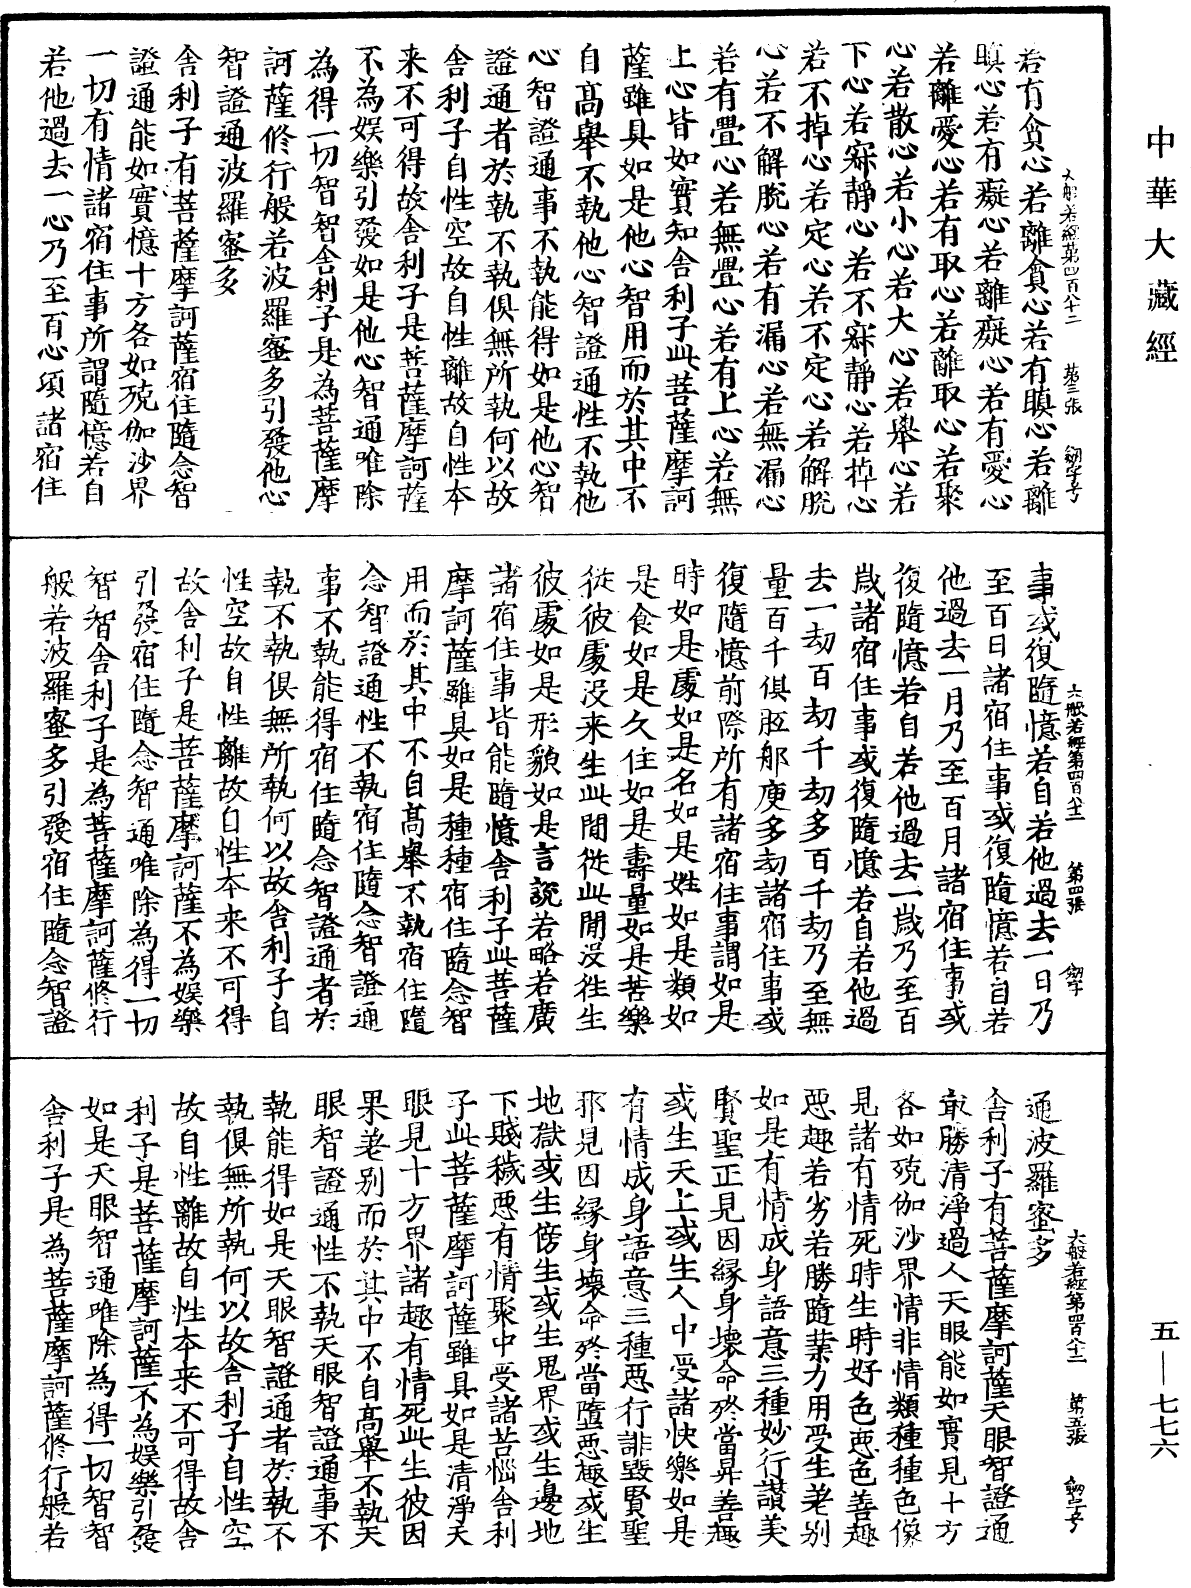 中華大藏經
若有貪心若離貪心若有瞋心若離
大般若經第四百八十二 第三張 劒字号
瞋心若有癡心若離癡心若有愛心
若離愛心若有取心若離取心若聚
心若散心若小心若大心若舉心若
下心若寂靜心若不寂靜心若掉心
若不掉心若定心若不定心若解脫
心若不解脫心若有漏心若無漏心
若有疊心若無疊心若有上心若無
上心皆如實知舍利子此菩薩摩訶
薩雖具如是他心智用而於其中不
自高舉不執他心智證通性不執他
心智證通事不執能得如是他心智
證通者於執不執俱無所執何以故
舍利子自性空故自性離故自性本
来不可得故舍利子是菩薩摩訶薩
不為娛樂引發如是他心智通唯除
為得一切智智舍利子是為菩薩摩
訶薩修行般若波羅蜜多引發他心
智證通波羅蜜多
舍利子有菩薩摩訶薩宿住隨念智
證通能如實憶十方各如殑伽沙界
一切有情諸宿住事所謂隨憶若自
若他過去一心乃至百心頃諸宿住
事或復隨憶若自若他過去一日乃
大般若經第四百八十二 第四張 劒字
至百日諸宿住事或復隨憶若自若
他過去一月乃至百月諸宿住事或
復隨憶若自若他過去一歲乃至百
歲諸宿住事或復隨憶若自若他過
去一劫百劫千劫多百千劫乃至無
量百千俱胝那庾多劫諸宿住事或
復隨憶前際所有諸宿住事謂如是
時如是處如是名如是姓如是類如
是食如是久住如是壽量如是苦樂
從彼處沒来生此閒從此閒沒往生
彼處如是形貌如是言說若略若廣
諸宿住事皆能隨憶舍利子此菩薩
摩訶薩雖具如是種種宿住隨念智
用而於其中不自高舉不執宿住隨
念智證通性不執宿住隨念智證通
事不執能得宿住隨念智證通者於
執不執俱無所執何以故舍利子自
性空故自性離故自性本来不可得
故舍利子是菩薩摩訶薩不為娛樂
引發宿住隨念智通唯除為得一切
智智舍利子是為菩薩摩訶薩修行
般若波羅蜜多引發宿住隨念智證
通波羅蜜多
大般若經第四百八十二 第五張 劒字号
舍利子有菩薩摩訶薩天眼智證通
冣勝清淨過人天眼能如實見十方
各如殑伽沙界情非情類種種色像
見諸有情死時生時好色惡色善趣
惡趣若劣若勝隨業力用受生差別
如是有情成身語意三種妙行讚美
賢聖正見因緣身壞命終當昇善趣
或生天上或生人中受諸快樂如是
有情成身語意三種惡行誹毀賢聖
邪見因緣身壞命終當墮惡趣或生
地獄或生傍生或生鬼界或生邊地
下賤穢惡有情聚中受諸苦惱舍利
子此菩薩摩訶薩雖具如是清淨天
眼見十方界諸趣有情死此生彼因
果差別而於其中不自高舉不執天
眼智證通性不執天眼智證通事不
執能得如是天眼智證通者於執不
執俱無所執何以故舍利子自性空
故自性離故自性本来不可得故舍
利子是菩薩摩訶薩不為娛樂引發
如是天眼智通唯除為得一切智智
舍利子是為菩薩摩訶薩修行般若
五—七七六